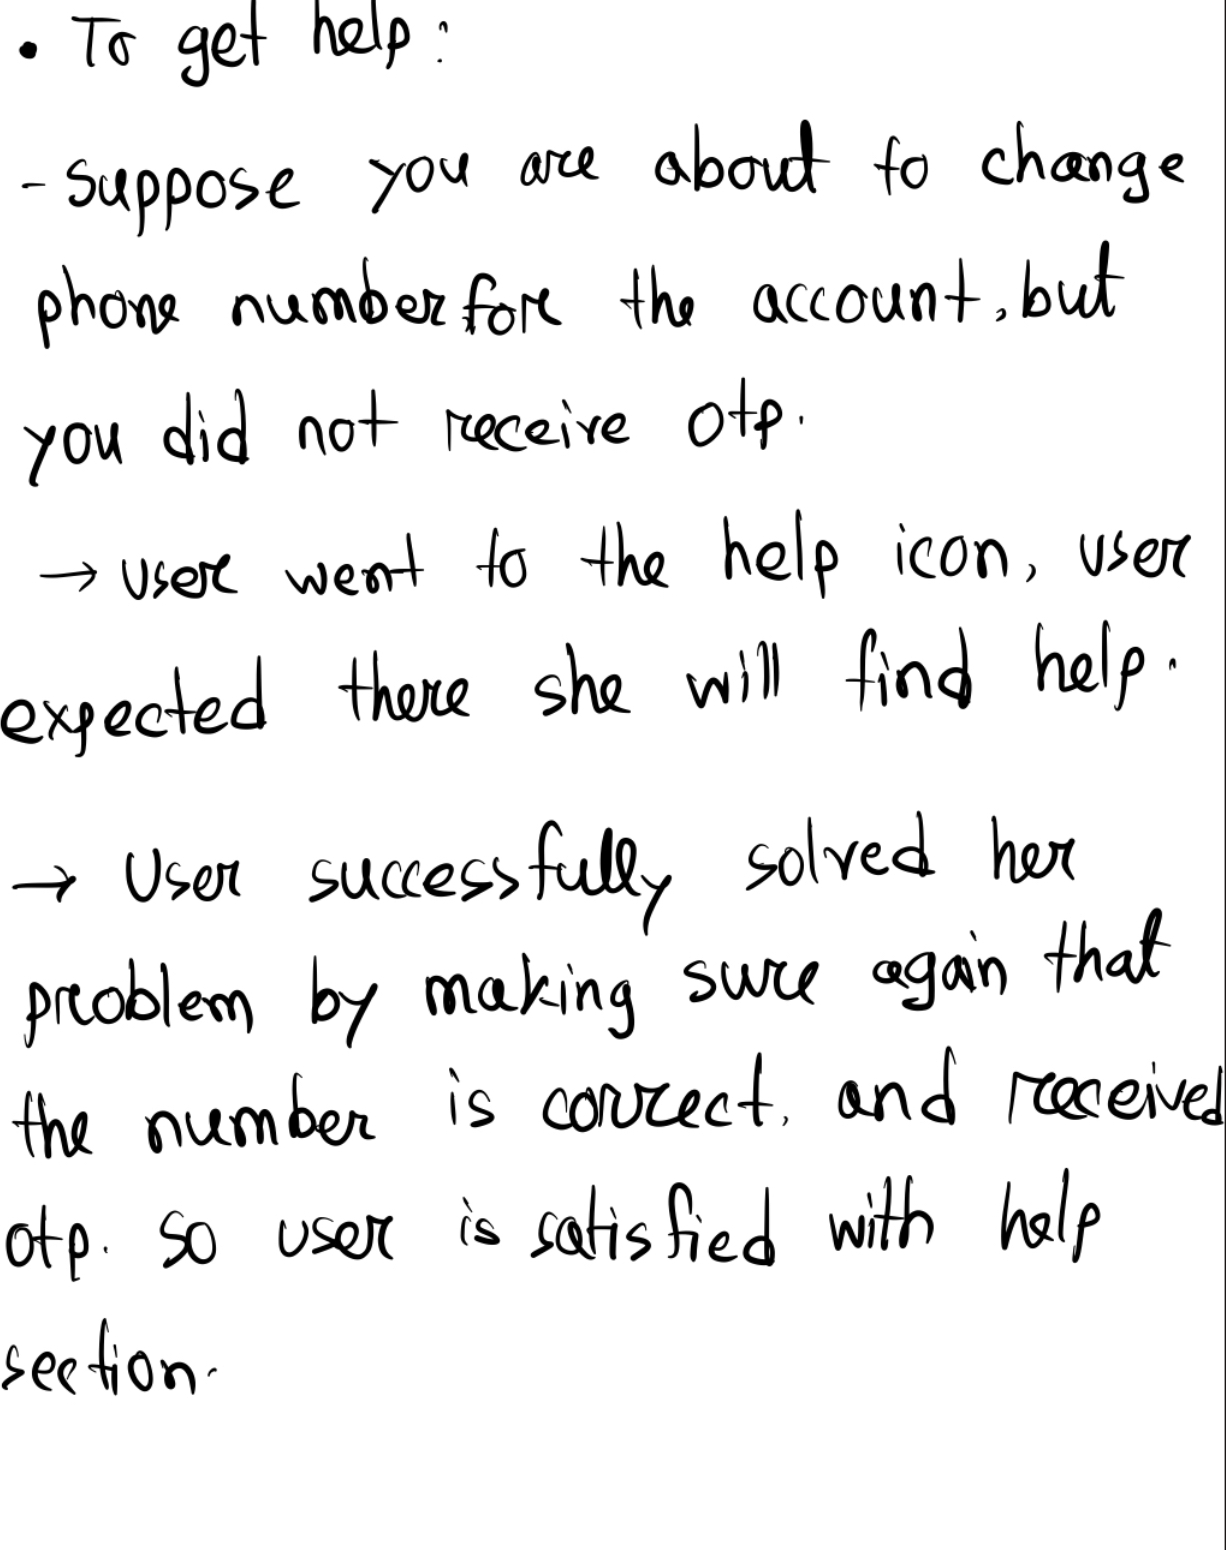 • To get help:
- Suppose you are about to change
phone number for the account, but
you did not receive otp.
→ User went to the help icon, user
expected there she will find help.
→ User successfully solved her
problem by making sure again that
the number is correct, and received
otp. So user is satisfied with help
section.